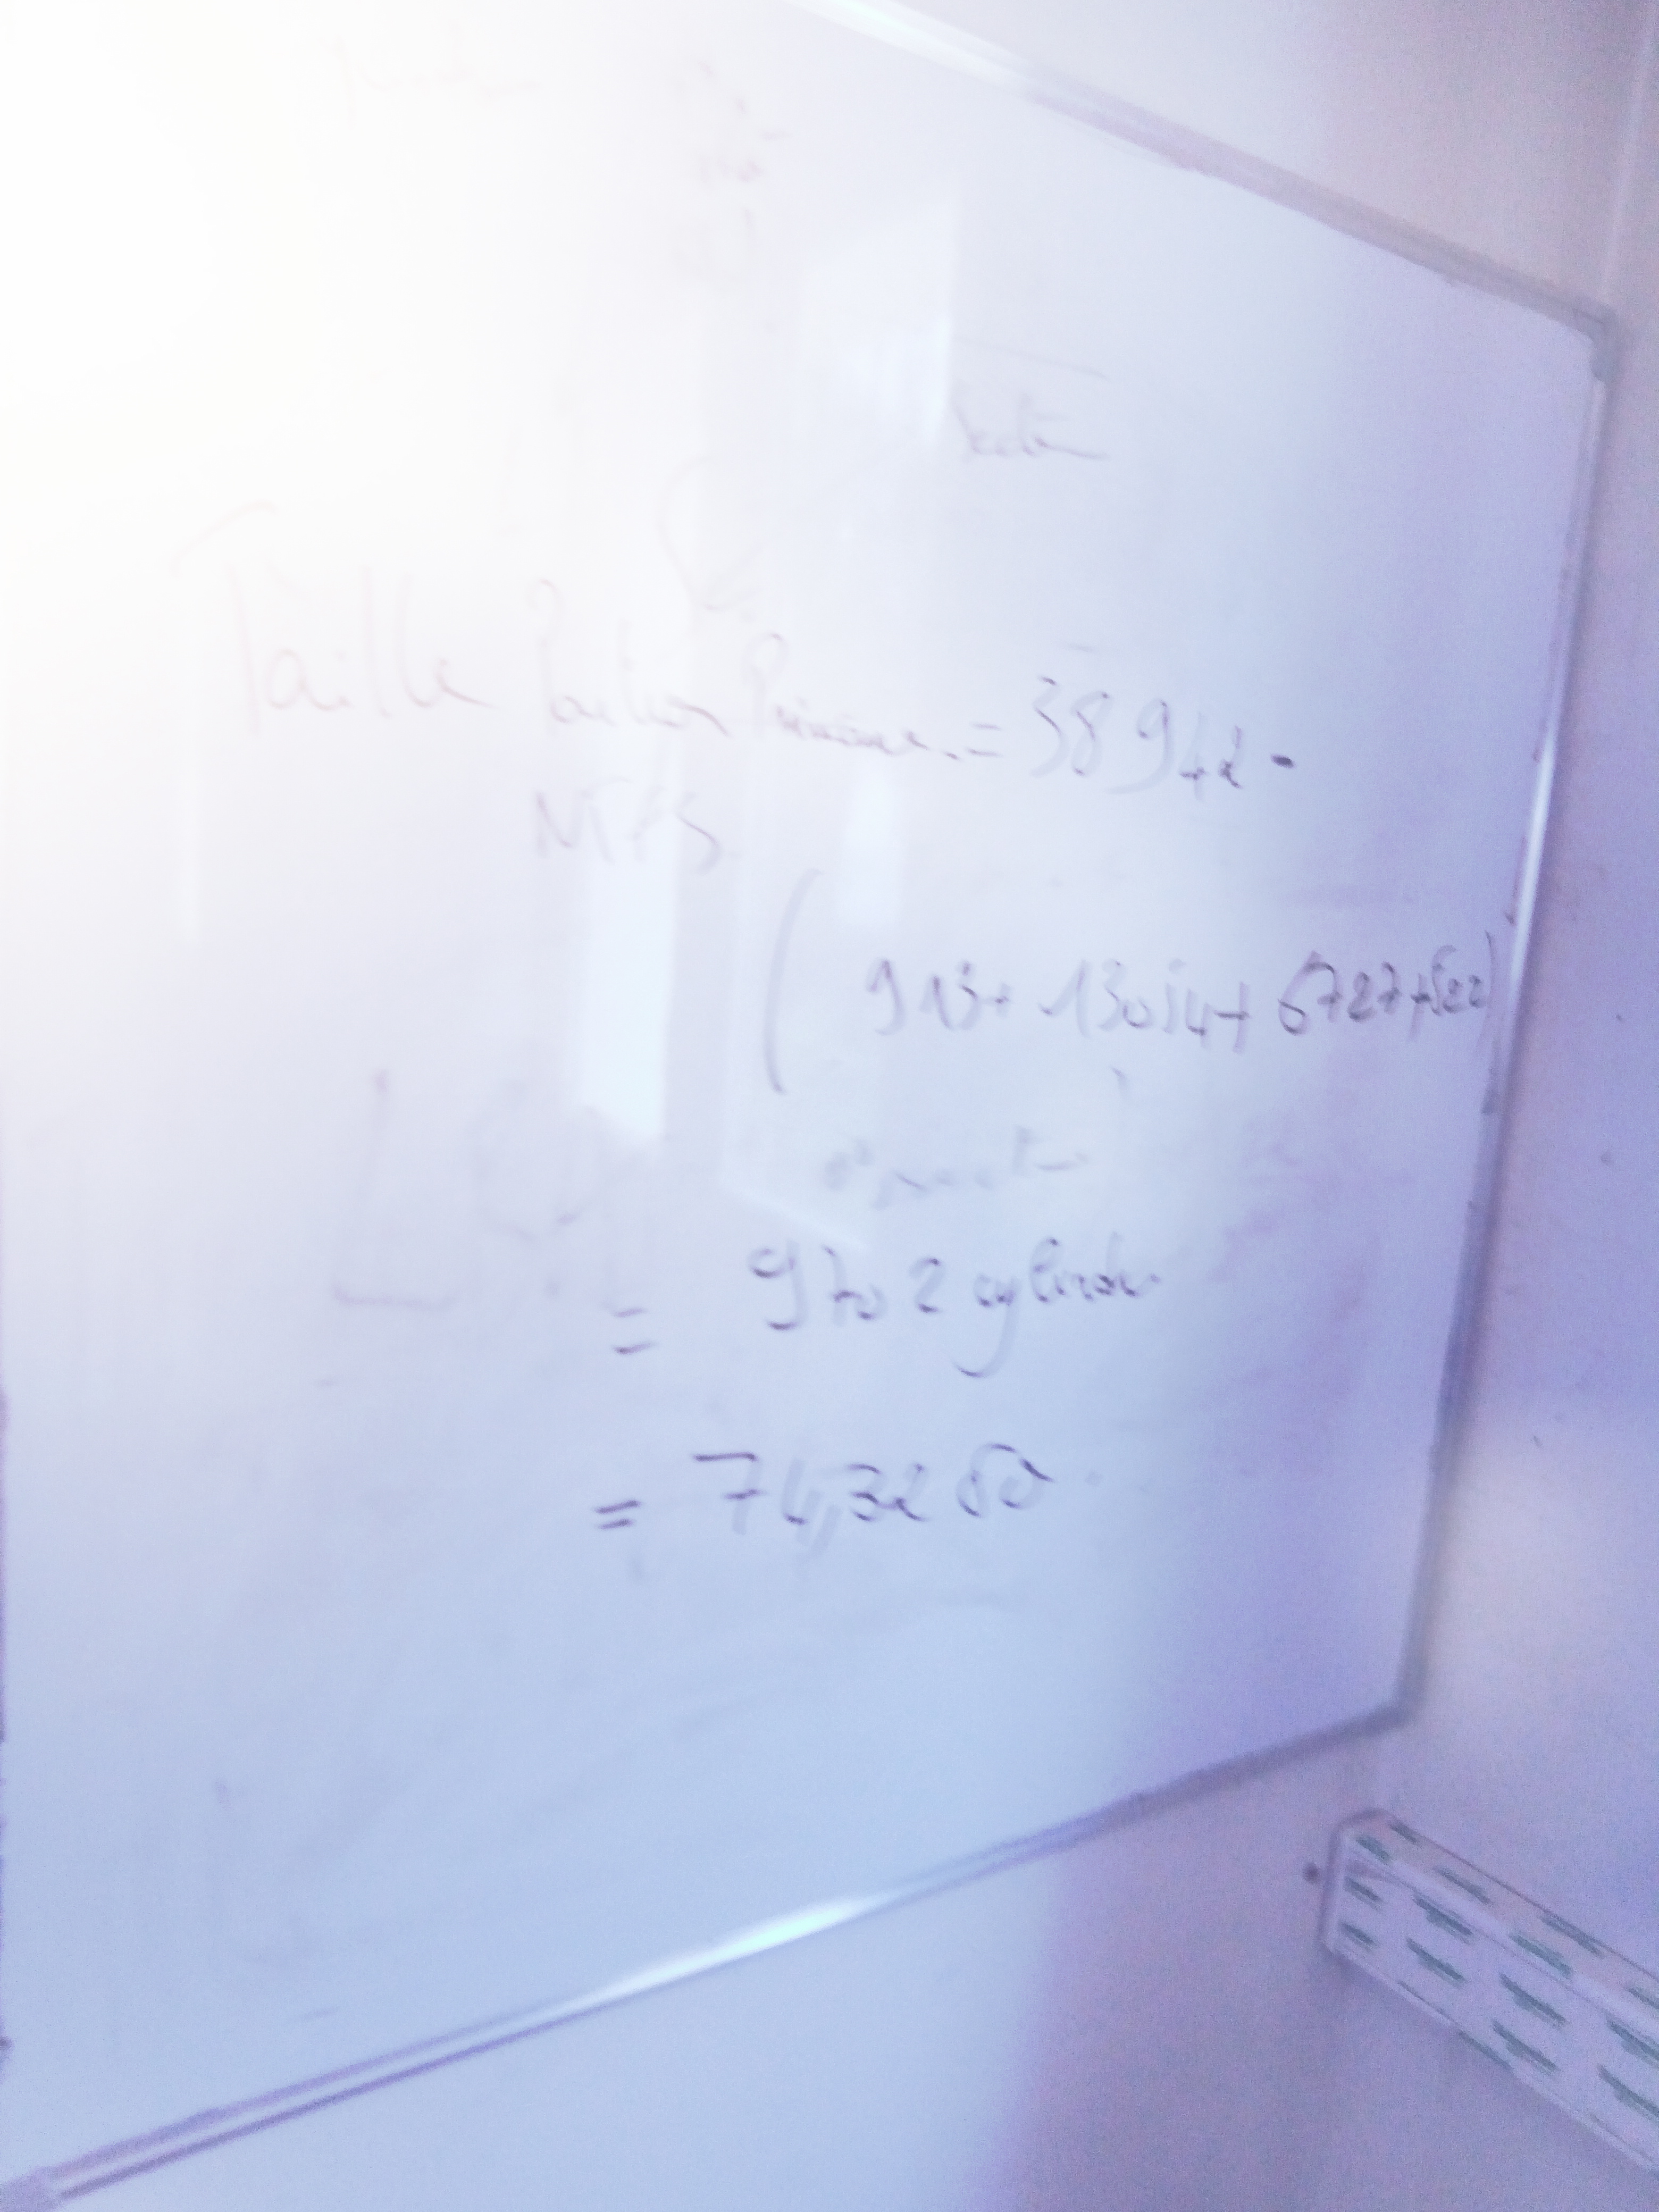 Secteur
Taille Partition Primaire = 38942 -
NTFS
(913 + 13054 + 6727 + 522)
= 9702 cylindres
= 74,32 Go